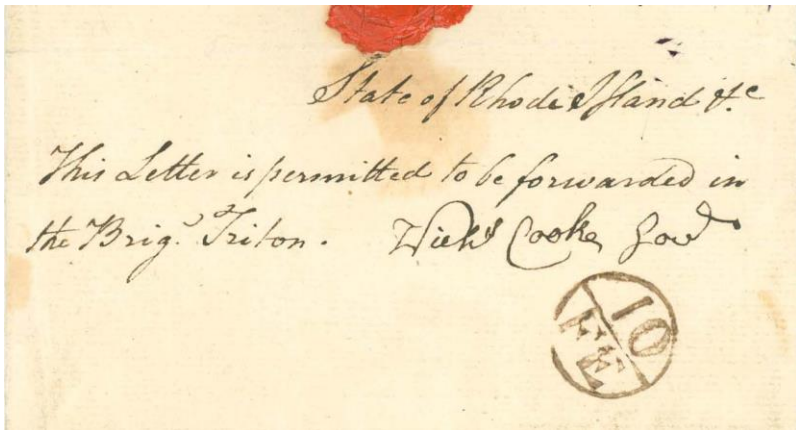 State of Rhode Island &c
This Letter is permitted to be forwarded in
the Brig.ⁿ Triton. Nichs Cooke Govr
10
FE